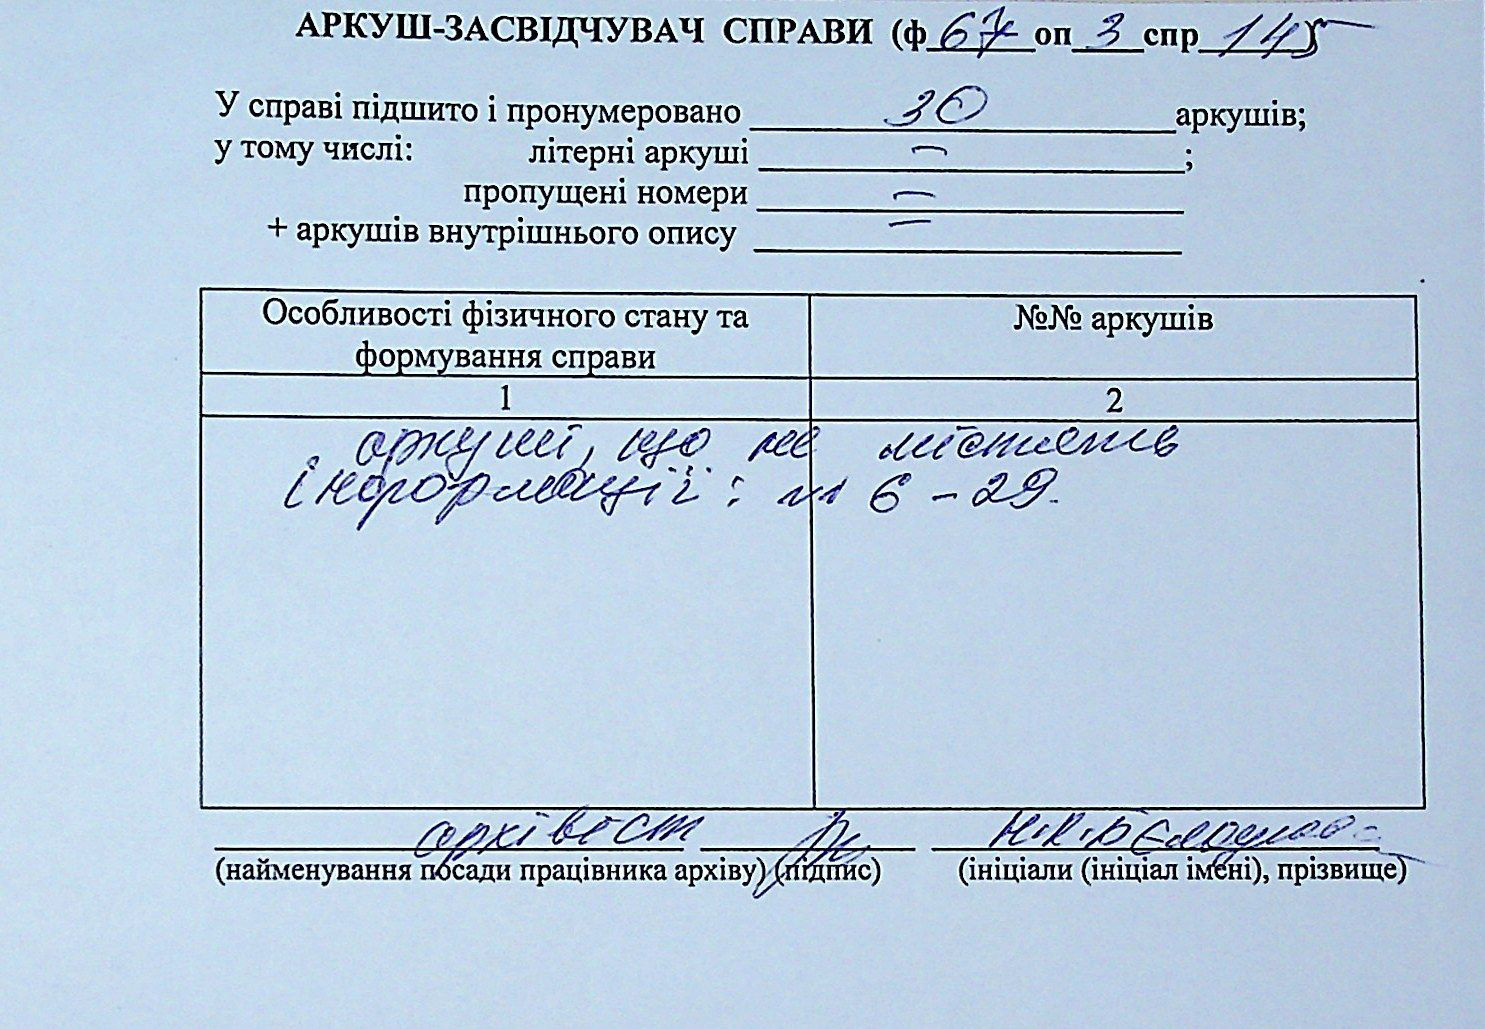 АРКУШ-ЗАСВІДЧУВАЧ СПРАВИ (ф 67 оп 3 спр 145)
У справі підшито і пронумеровано 30 аркушів;
у тому числі: літерні аркуші – ;
пропущені номери –
+ аркушів внутрішнього опису –
Особливості фізичного стану та №№ аркушів
формування справи
1 2
аркуші, що не містять
інформації: 6 – 29.
архівіст
(найменування посади працівника архіву) (підпис) (ініціали (ініціал імені), прізвище)